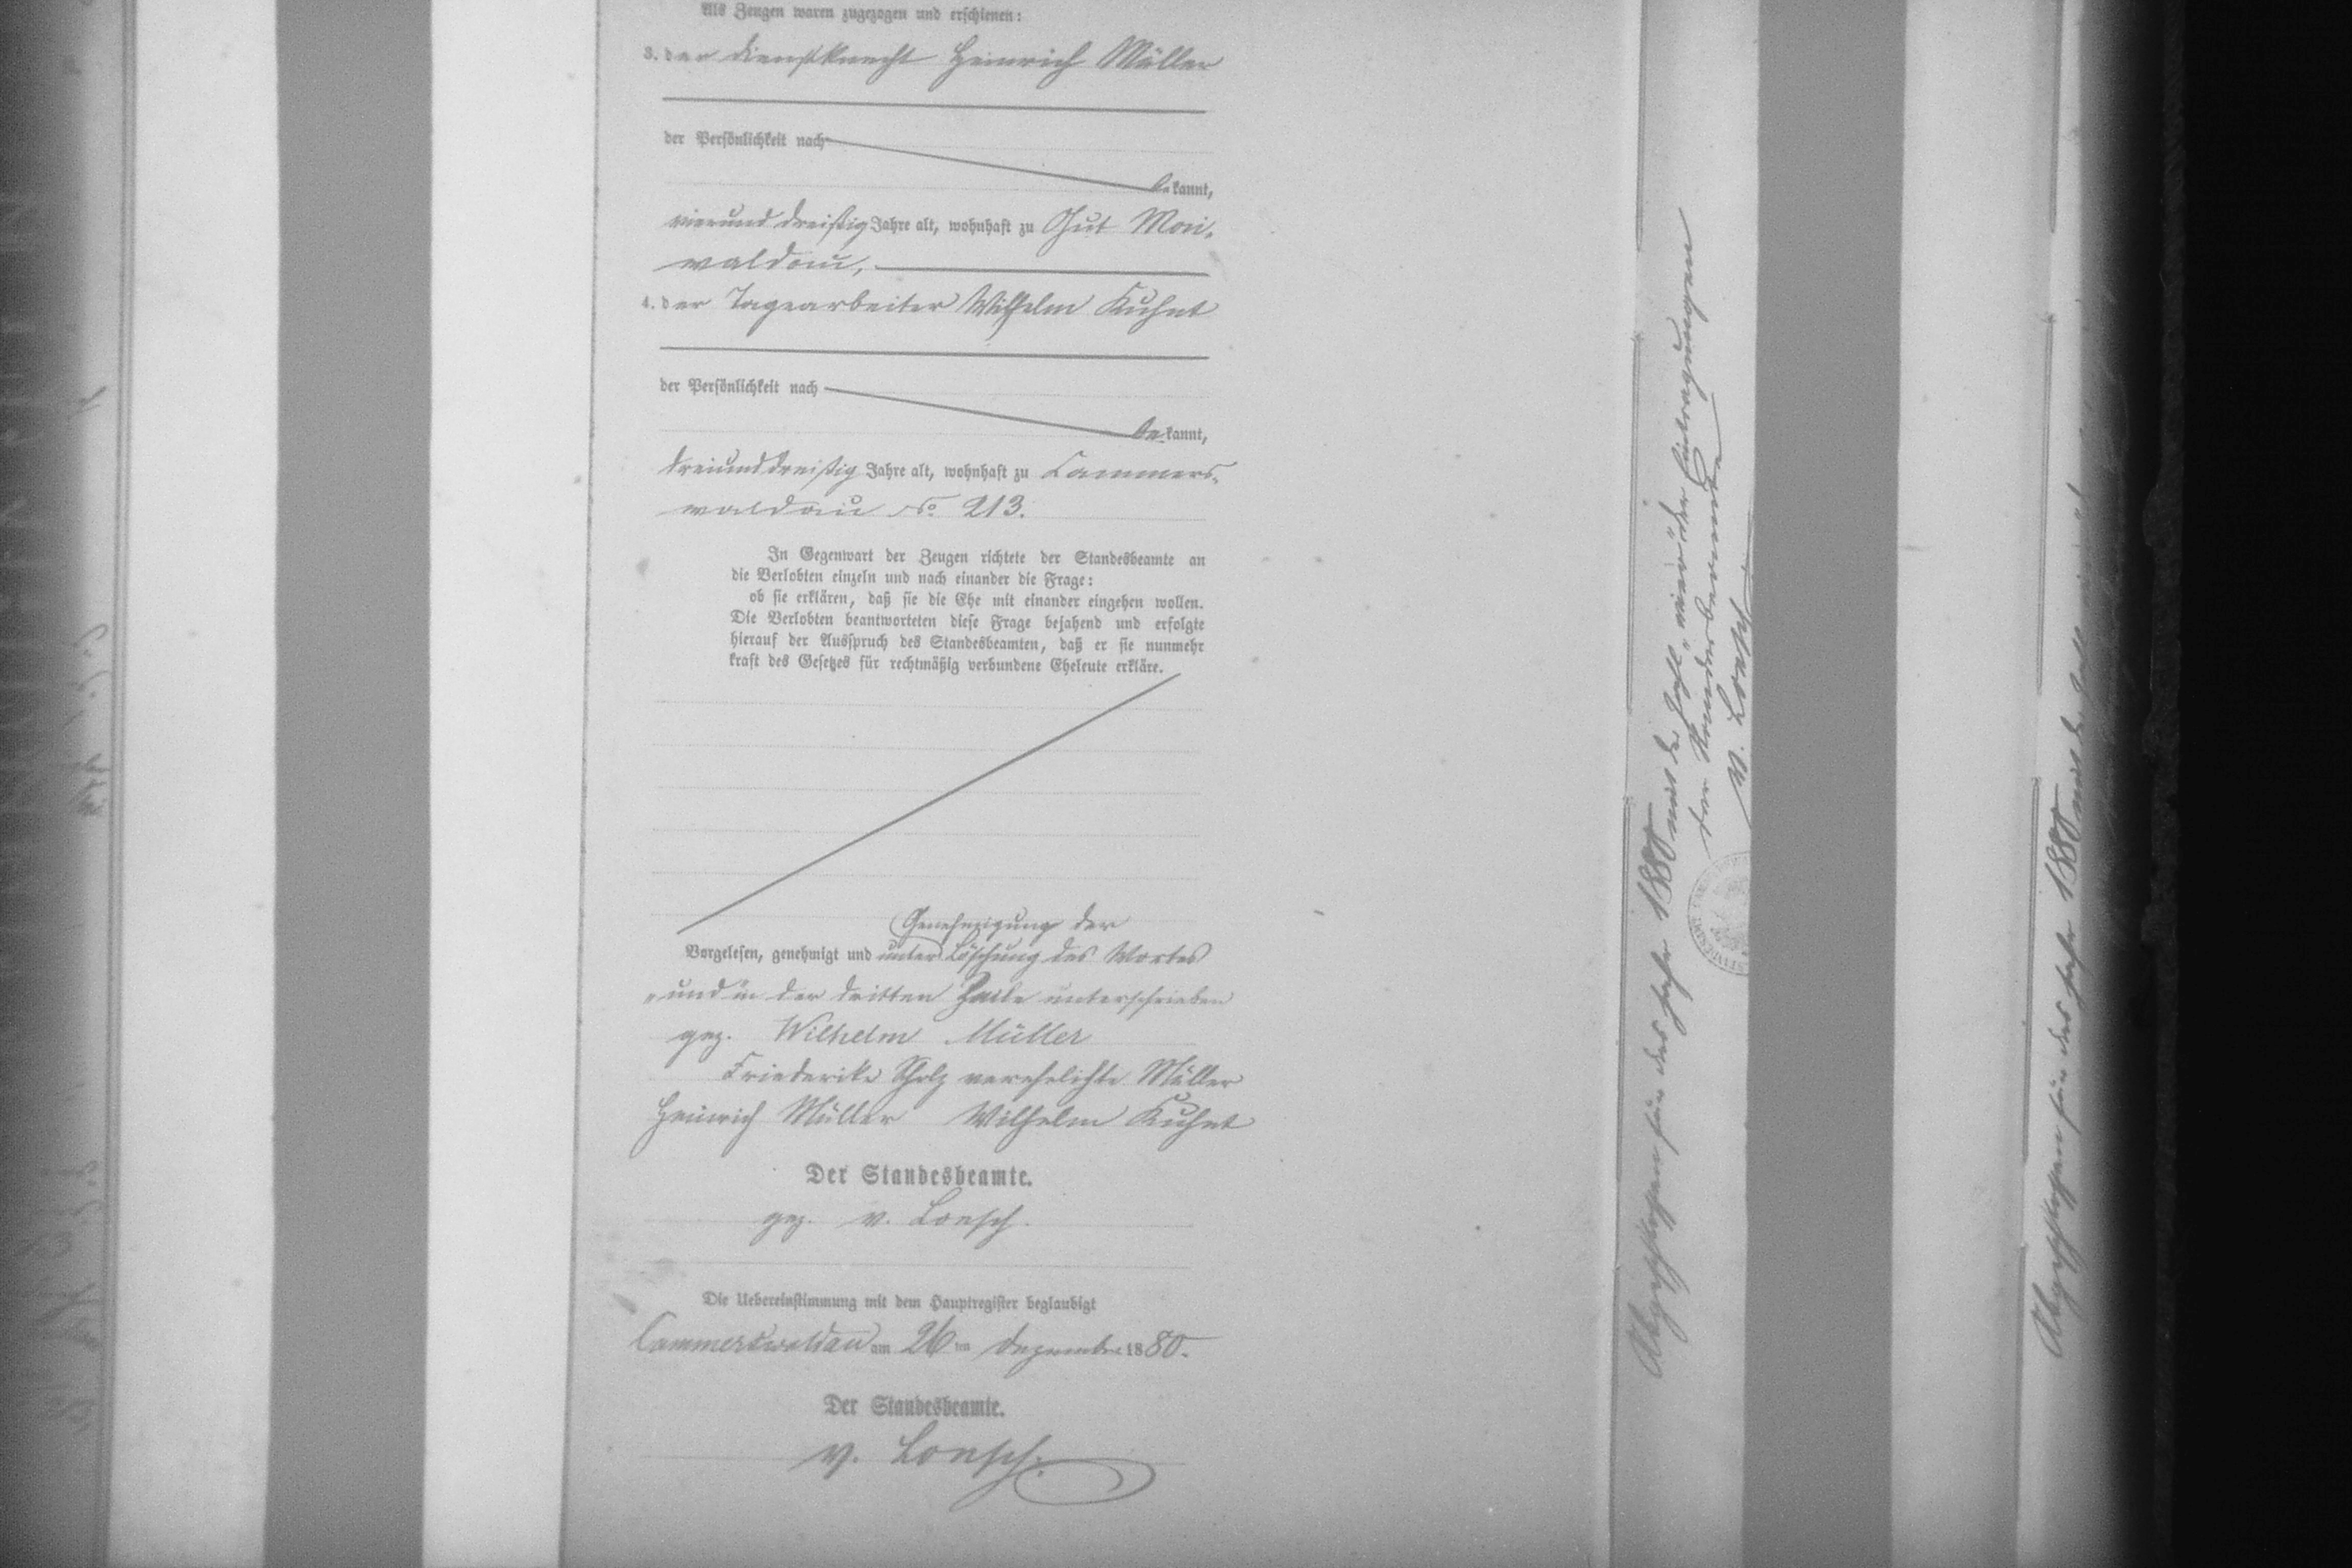 Als Zeugen waren zugezogen und erschienen:
3. der Dienstknecht Heinrich Müller
der Persönlichkeit nach
bekannt,
vierunddreißig Jahre alt, wohnhaft zu Gut Mai-
waldau,
4. der Tagearbeiter Wilhelm Kuhnt
der Persönlichkeit nach
bekannt,
dreiunddreißig Jahre alt, wohnhaft zu Cammers-
waldau No 213.
In Gegenwart der Zeugen richtete der Standesbeamte an
die Verlobten einzeln und nach einander die Frage:
ob sie erklären, daß sie die Ehe mit einander eingehen wollen.
Die Verlobten beantworteten diese Frage bejahend und erfolgte
hierauf der Ausspruch des Standesbeamten, daß er sie nunmehr
kraft des Gesetzes für rechtmäßig verbundene Eheleute erkläre.
Genehmigung der
Vorgelesen, genehmigt und unter Löschung des Wortes
„und" in der dritten Zeile unterschrieben
gez. Wilhelm Müller
Friederike Scholz verehelichte Müller
Heinrich Müller Wilhelm Kuhnt
Der Standesbeamte.
gez. v. Loesch.
Die Uebereinstimmung mit dem Hauptregister beglaubigt
Cammerswaldau am 26ten Dezember 1880.
Der Standesbeamte.
v. Loesch.
Abgeschlossen für das Jahr 1880 mit der Zahl „vier" der Eintragungen
der Standesbeamte
v. Loesch
Abgeschlossen für das Jahr 1880 mit der Zahl